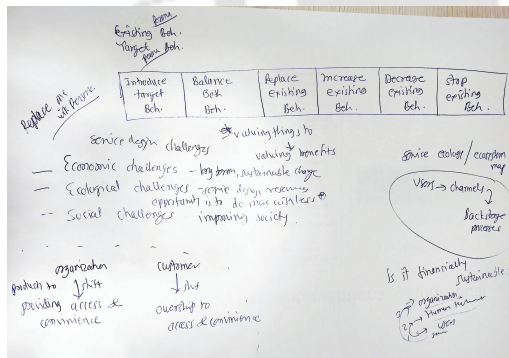 Existing Beh.
Target Beh.
Replace me
with Persona
Introduce target Beh.
Balance Both Beh.
Replace existing Beh.
Increase existing Beh.
Decrease existing Beh.
Stop existing Beh.
Service design challenges
valuing things to
valuing benefits
— Economic challenges - long term, sustainable change
— Ecological challenges - service design
opportunity is to do more with less
-- Social challenges improving society
organization
products to shift
providing access &
convenience
customer
shift
ownership to
access & convenience
service ecology / ecosystem
map
users → channels
Backstage
processes
Is it financially
sustainable
organization
Human
users